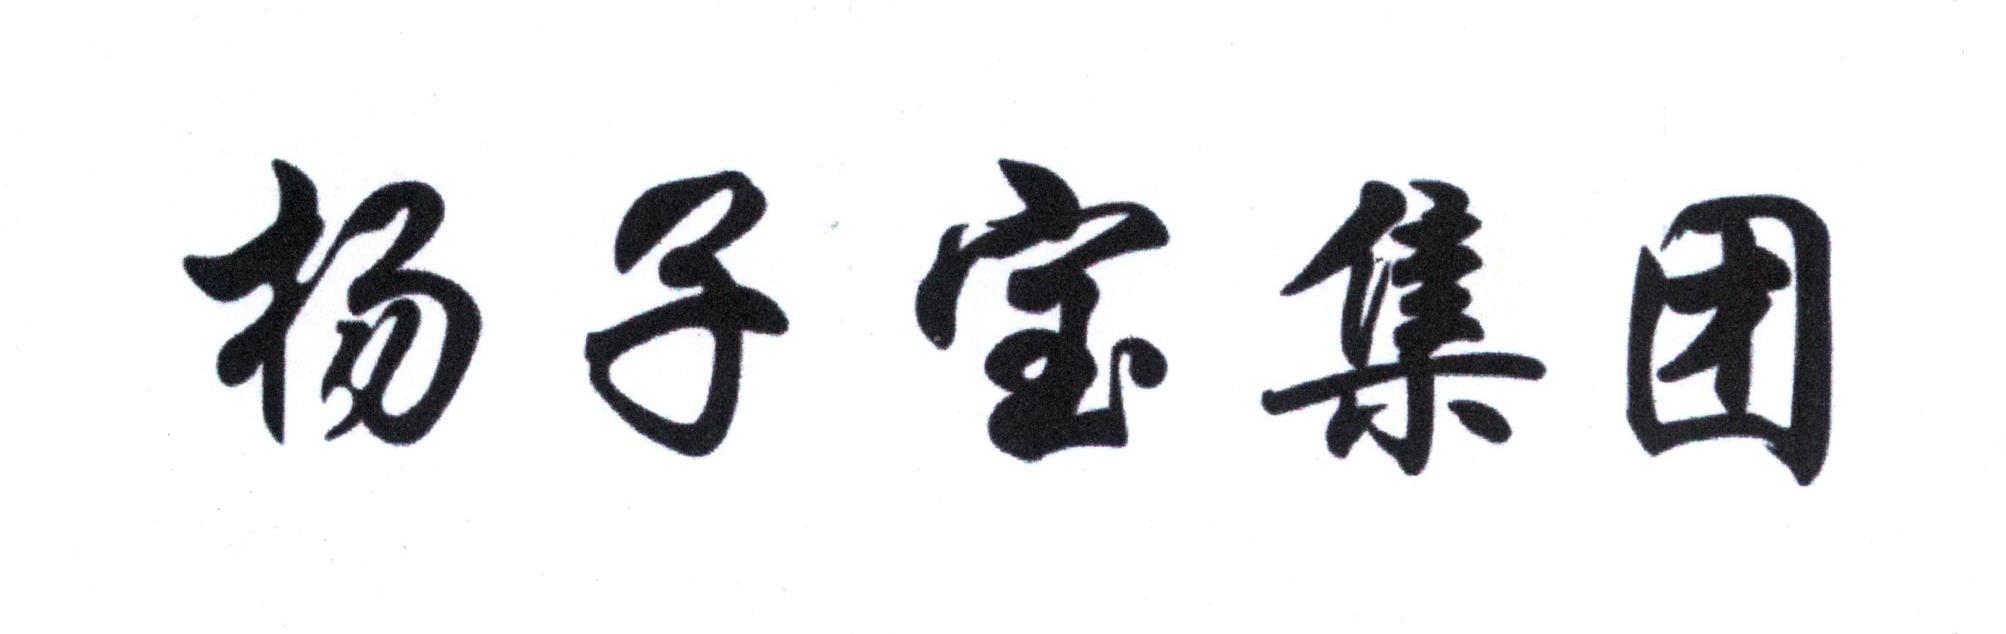 杨子宝集团